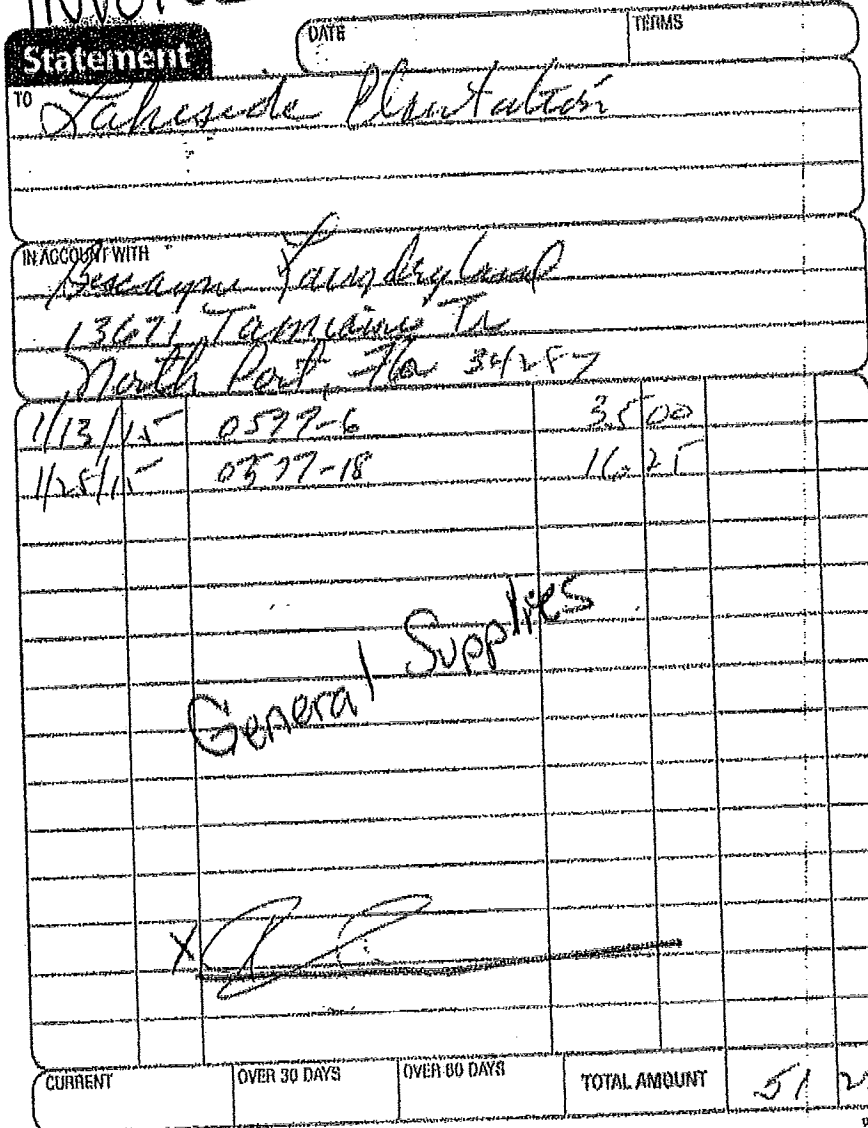 INVOICE
DATE
TERMS
Statement
TO
Lakeside Plantation
IN ACCOUNT WITH
Biscayne Laundryland
13671 Tamiami Tr
North Port, Fla 34287
1/13/15 0577-6 35 00
1/25/15 0577-18 16.25
General Supplies
X
CURRENT
OVER 30 DAYS
OVER 60 DAYS
TOTAL AMOUNT
51